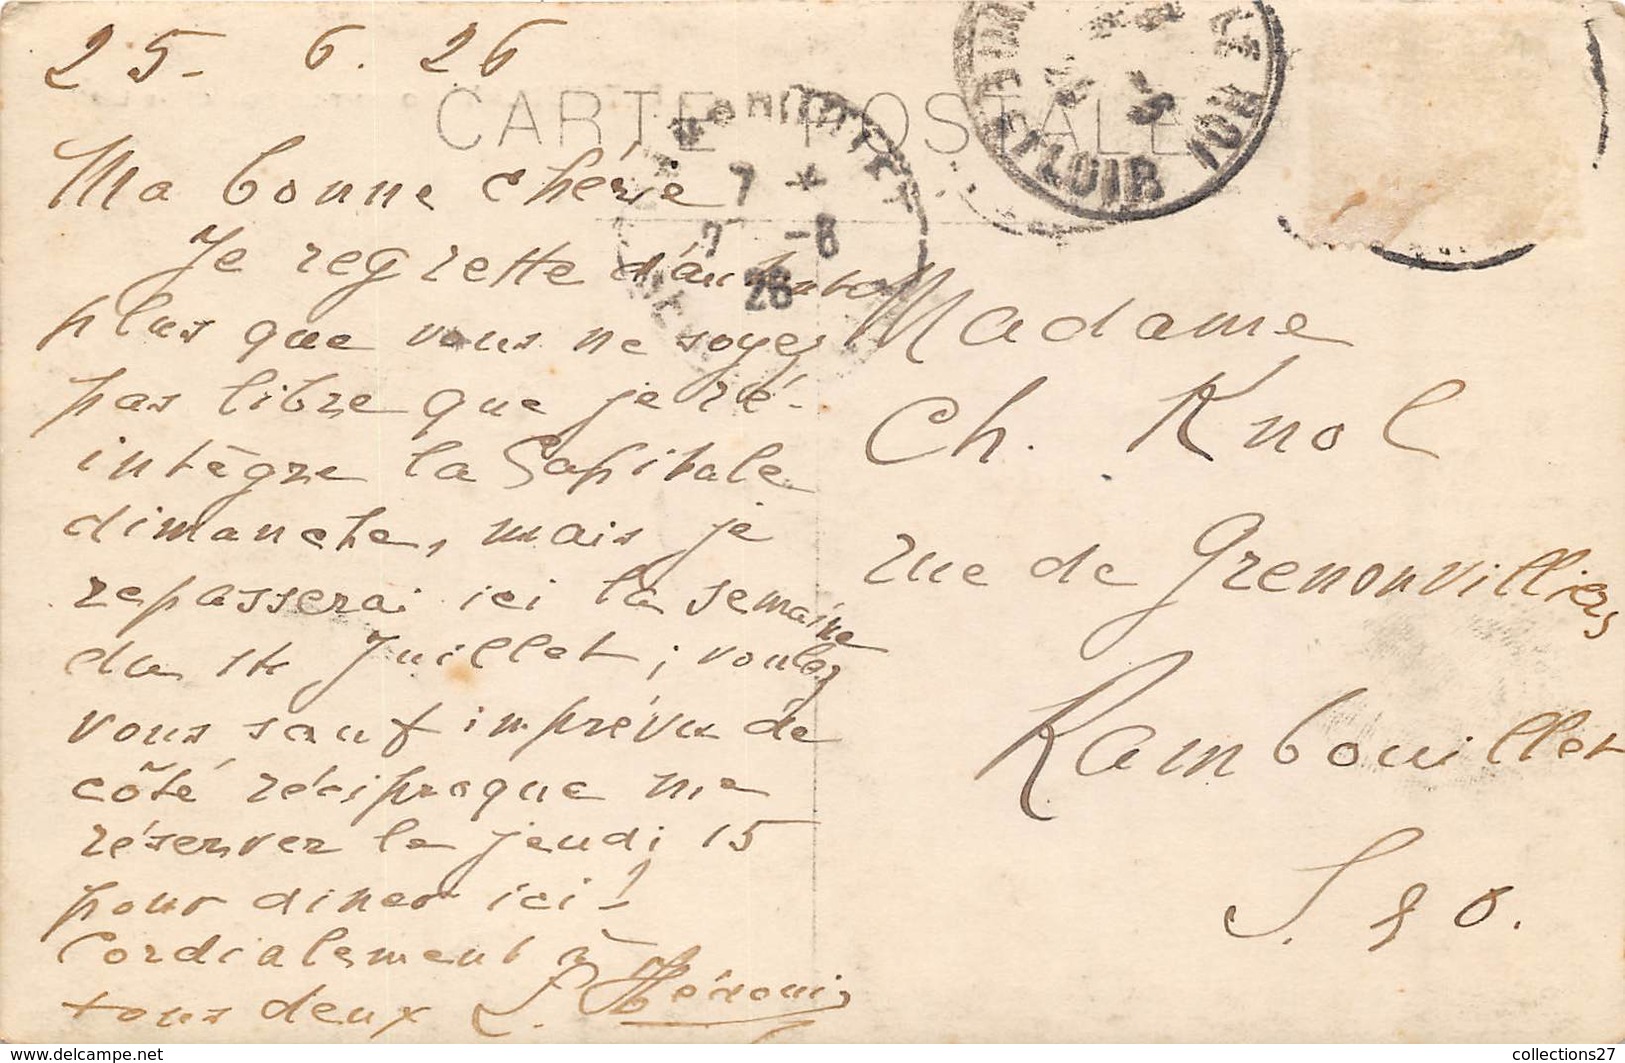 25- 6. 26
CARTE POSTALE
Ma bonne chérie
Je regrette d'autant
plus que vous ne soyez
pas libre que je ré-
intègre la Capitale
dimanche, mais je
repasserai ici la semaine
du 14 Juillet; voulez
vous sauf imprévu de
côté réciproque me
réserver le jeudi 15
pour diner ici!
Cordialement à
tous deux
Madame
Ch. Knol
rue de Grenonvilliers
Rambouillet
S. & O.
7 *
7 -6
26
collections27
www.delcampe.net